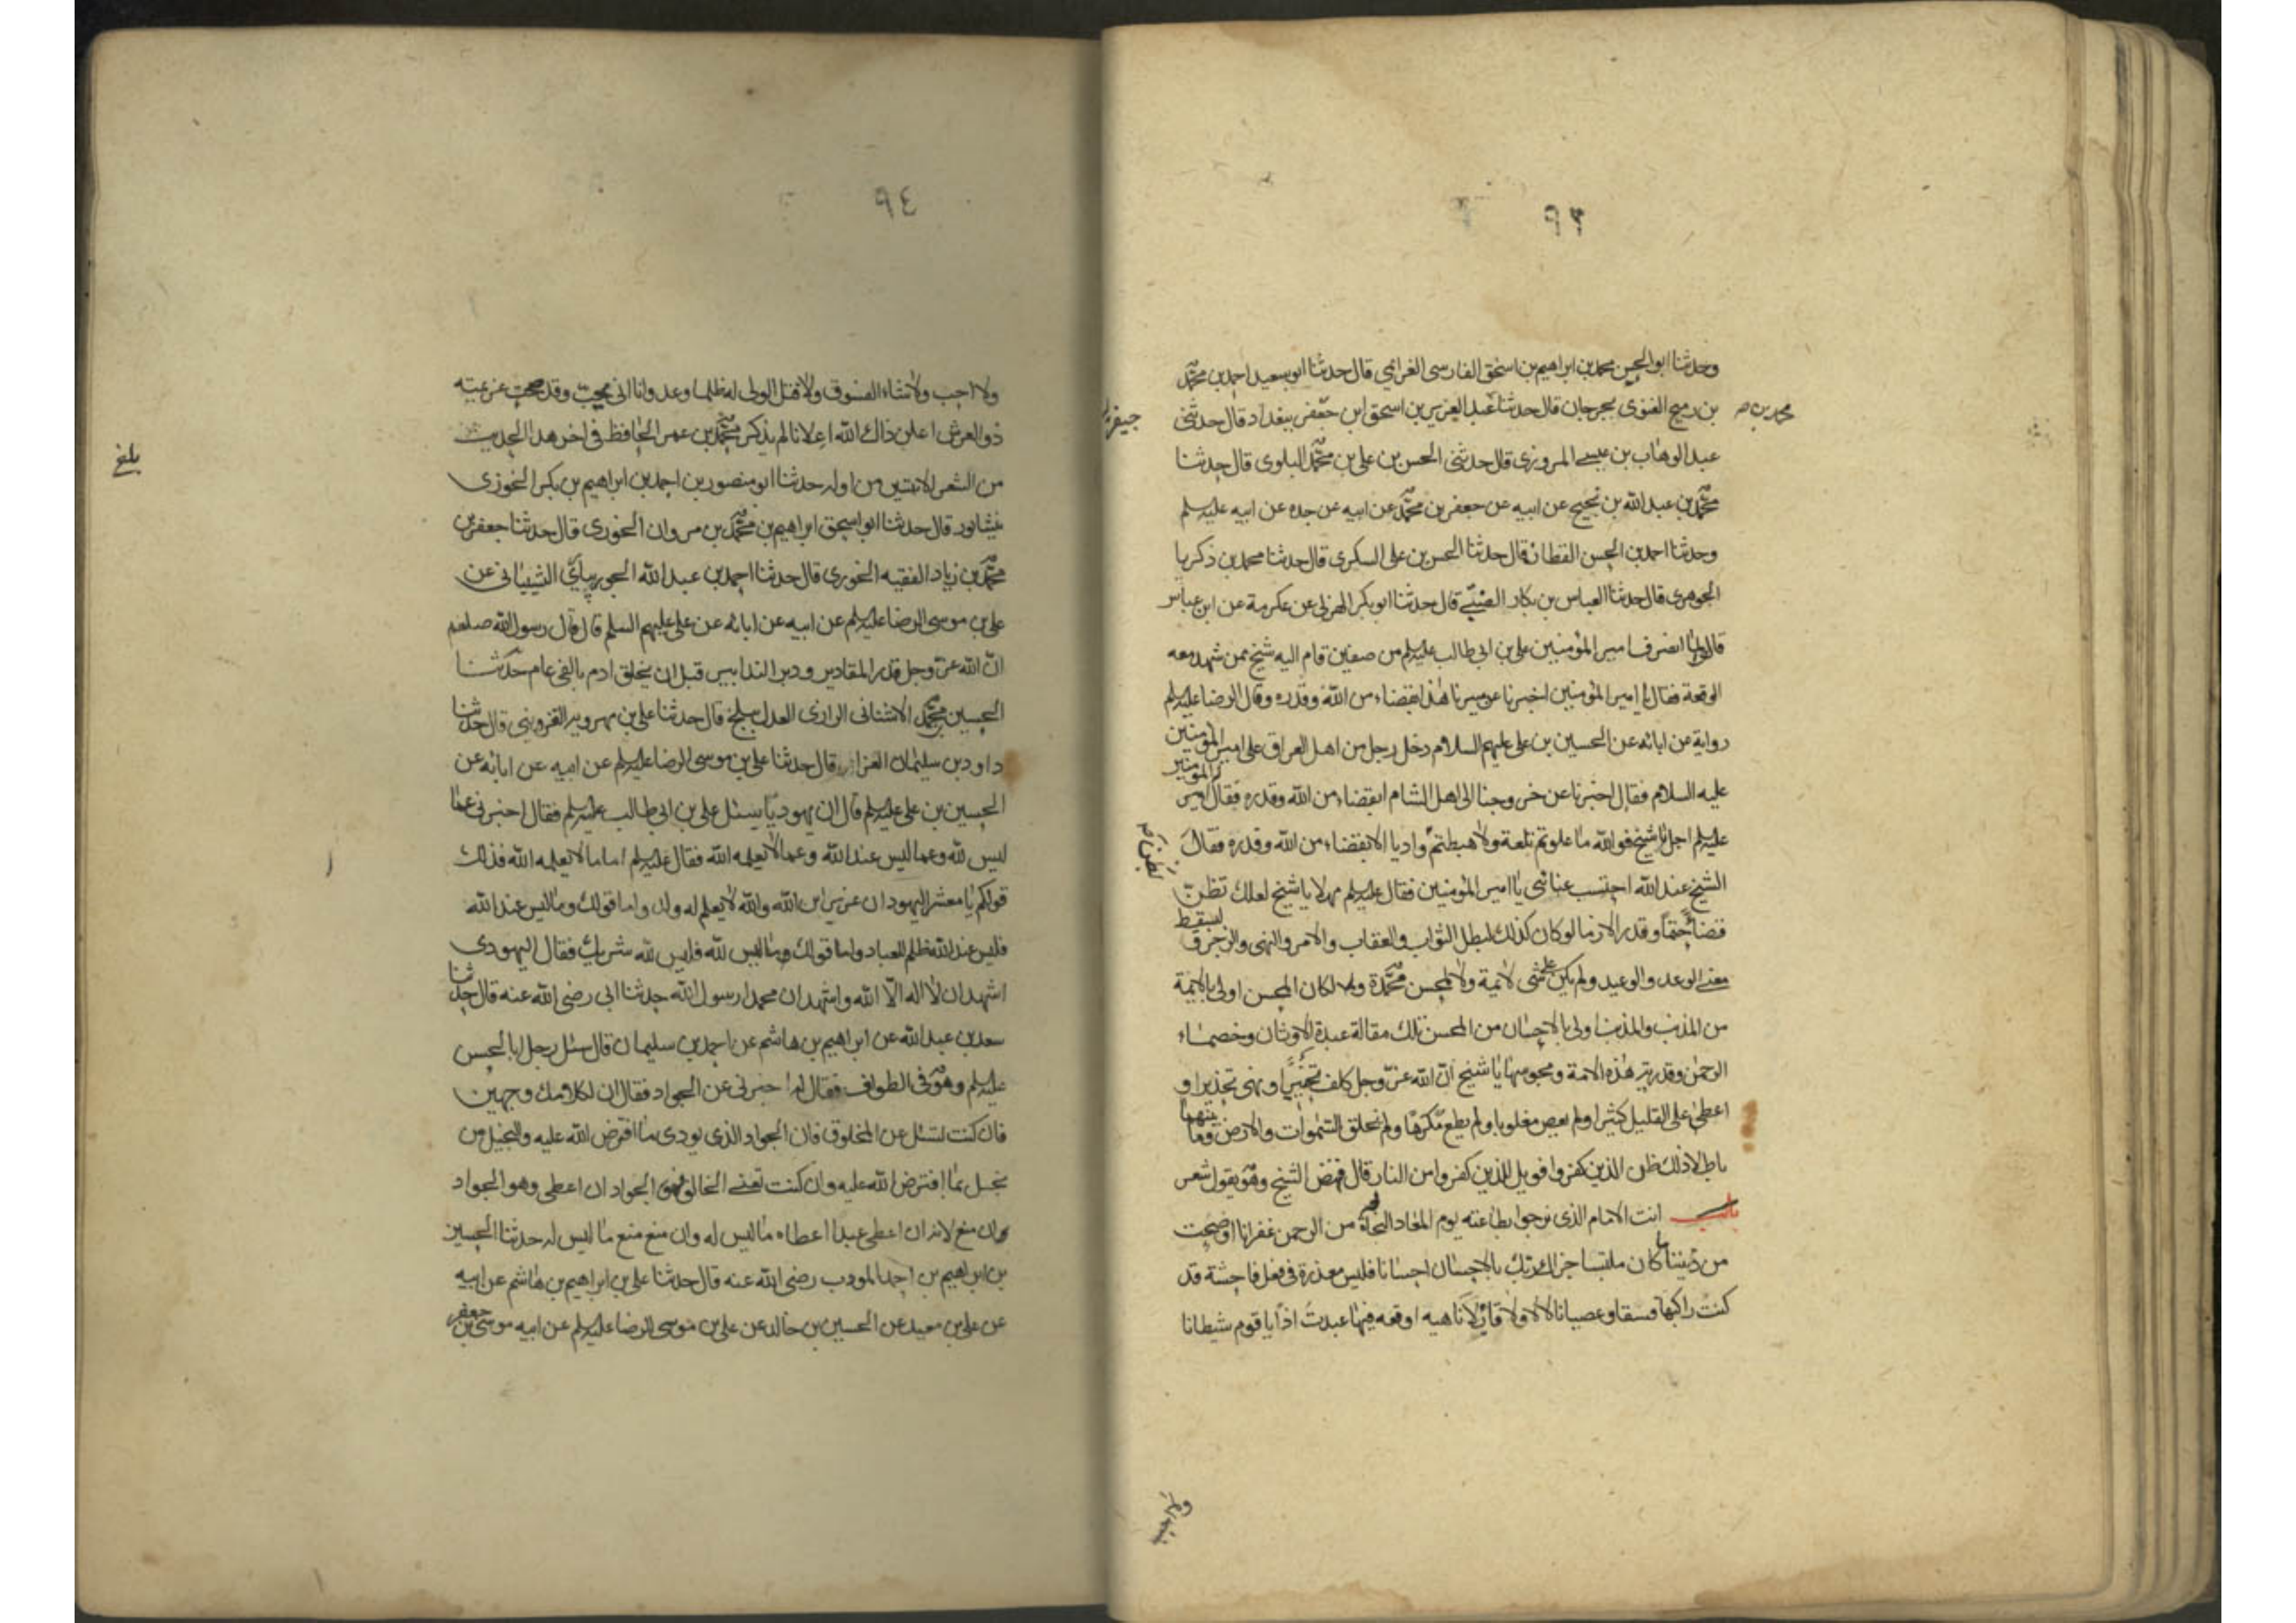 ٩٣
وحدثنا ابو الحسن محمد بن ابراهيم بن اسحق الفارسى الغرائمي قال حدثنا ابو سعيد احمد بن محمد
بن رميح الفنوى بجرجان قال حدثنا عبد العزيز بن اسحق ابن جعفر ببغداد قال حدثنى
محمد بن
عبد الوهاب بن عيسى المروزى قال حدثنى الحسن بن على بن محمد البلوى قال حدثنا
محمد بن عبد الله بن نجيح عن ابيه عن جعفر بن محمد عن ابيه عن جده عن ابيه عليه لم
وحدثنا احمد بن الحسن القطان قال حدثنا الحسن بن على السكرى قال حدثنا محمد بن ذكريا
الجوهرى قال حدثنا العباس بن بكار الضبى قال حدثنا ابو بكر الهزلى عن عكرمة عن ابن عباس
قالوا لما انصرف امير المؤمنين على بن ابى طالب عليه لم من صفين قام اليه شيخ ممن شهد معه
الوقعة فقال يا امير المؤمنين اخبرنا عن مسيرنا هذا ابقضاء من الله وقدره وقال الرضا عليه لم
رواية عن ابائه عن الحسين بن على عليهم السلام دخل رجل من اهل العراق على امير المؤمنين
عليه السلام فقال اخبرنا عن خروجنا الى اهل الشام ابقضاء من الله وقدره فقال امير المؤمنين
عليه لم اجل يا شيخ فوالله ما علوتم تلعة ولا هبطتم واديا الا بقضاء من الله وقدره فقال
الشيخ عند الله احتسب عنائى يا امير المؤمنين فقال عليه لم مهلا يا شيخ لعلك تظن
قضاء حتما وقدر الازما لو كان كذلك لبطل الثواب والعقاب والامر والنهى والزجر ولسقط
معنى الوعد والوعيد ولم يكن على مسئ لائمة ولا لمحسن محمدة ولا لكان المحسن اولى بالائمة
من المذنب والمذنب اولى بالاحسان من المحسن تلك مقالة عبدة الاوثان وخصماء
الرحمن وقدرية هذه الامة ومجوسها يا شيخ ان الله عز وجل كلف تخييرا ونهى تحذيرا و
اعطى على القليل كثيرا ولم يعص مغلوبا ولم يطع مكرها ولم يخلق السموات والارض وما بينهما
باطلا ذلك ظن الذين كفروا فويل للذين كفروا من النار قال فنهض الشيخ وهو يقول شعر
انت الامام الذى نرجوا بطاعته يوم المعاد النجاة من الرحمن غفرانا اوضحت
من ديننا ما كان ملتبسا جزاك ربك بالاحسان احسانا فليس معذرة فى فعل فاحشة قد
كنت راكبها فسقا وعصيانا لا لا ولا قائلا ناهيه اوقعه فيها عبدت اذا يا قوم شيطانا
٩٤
ولا احب ولا شاء الفسوق ولا قتل الولى له ظلما وعدوانا انى يحب وقد صحت عزيمته
ذو العرش اعلن ذاك الله اعلانا لم يذكر محمد بن عمر الحافظ فى اخر هذا الحديث
بلغ
من الشعر الا بيتين من اوله حدثنا ابو منصور بن احمد بن ابراهيم بن بكر الخوزى
نيشابور قال حدثنا ابو اسحق ابراهيم بن محمد بن مروان الخورى قال حدثنا جعفر بن
محمد بن زياد الفقيه الخورى قال حدثنا احمد بن عبد الله الجويبارى الشيبانى عن
على بن موسى الرضا عليه لم عن ابيه عن ابائه عن على عليهم السلم قال قال رسول الله صلعم
ان الله عز وجل قدر المقادير ودبر التدابير قبل ان يخلق ادم بالفى عام حدثنا
الحسين محمد الاشنانى الرازى العدل ببلخ قال حدثنا على بن مهرويه القزوينى قال حدثنا
داود بن سليمان الفزا قال حدثنا على بن موسى الرضا عليه لم عن ابيه عن ابائه عن
الحسين بن على عليه لم قال ان يهوديا سئل على بن ابى طالب عليه لم فقال اخبرنى عما
ليس لله وعما ليس عند الله وعما لا يعلمه الله فقال عليه لم اما ما لا يعلمه الله فذلك
قولكم يا معشر اليهود ان عزير ابن الله والله لا يعلم له ولد واما قولك وما ليس عند الله
فليس عند الله ظلم للعباد واما قولك وما ليس لله فليس لله شريك فقال اليهودى
اشهد ان لا اله الا الله واشهد ان محمدا رسول الله حدثنا ابى رضى الله عنه قال حدثنا
سعد بن عبد الله عن ابراهيم بن هاشم عن احمد بن سليمان قال سئل رجل ابا الحسن
عليه لم وهو فى الطواف فقال له اخبرنى عن الجواد فقال ان لكلامك وجهين
فان كنت تسئل عن المخلوق فان الجواد الذى يودى ما افترض الله عليه والبخيل من
بخل بما افترض الله عليه وان كنت تعنى الخالق فهو الجواد ان اعطى وهو الجواد
وان منع لانه ان اعطى عبدا اعطاه ما ليس له وان منع منع ما ليس له حدثنا الحسين
بن ابراهيم بن احمد المودب رضى الله عنه قال حدثنا على بن ابراهيم بن هاشم عن ابيه
عن على بن معبد عن الحسين بن خالد عن على بن موسى الرضا عليه لم عن ابيه موسى بن جعفر